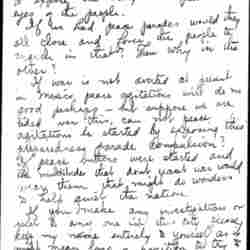 eyes of the people.
If we had peace parades would they
all close and force the people to
march in that? Then why in the
other?
If war is not averted at present
in Mexico peace agitations will do no
good perhaps - but suppose we are
tided over this, can not peace
agitations be started by exposing this
preparedness parade compulsion?
If peace buttons were started and
the multitude that don't want war would
wear them that might do wonders
to help quiet the nation.
If you make any investigations or
to any one in city please
keep my name entirely to yourself as it
might mean loss of position if they